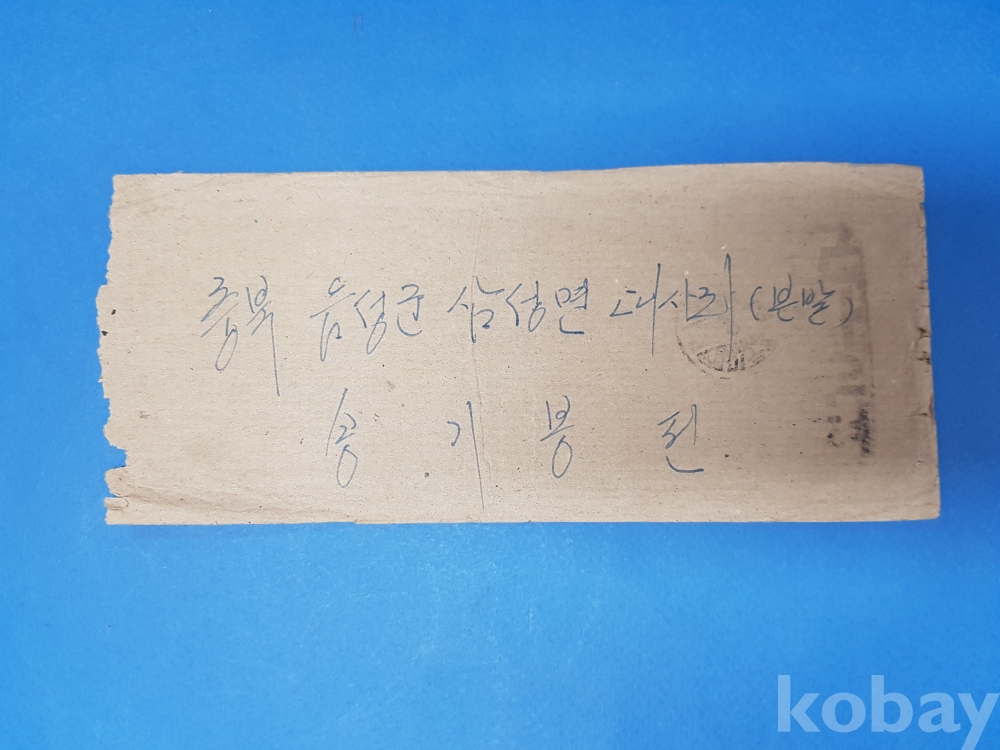 충북 음성군 삼성면 대사리 (본말)
송 기 봉 전
kobay